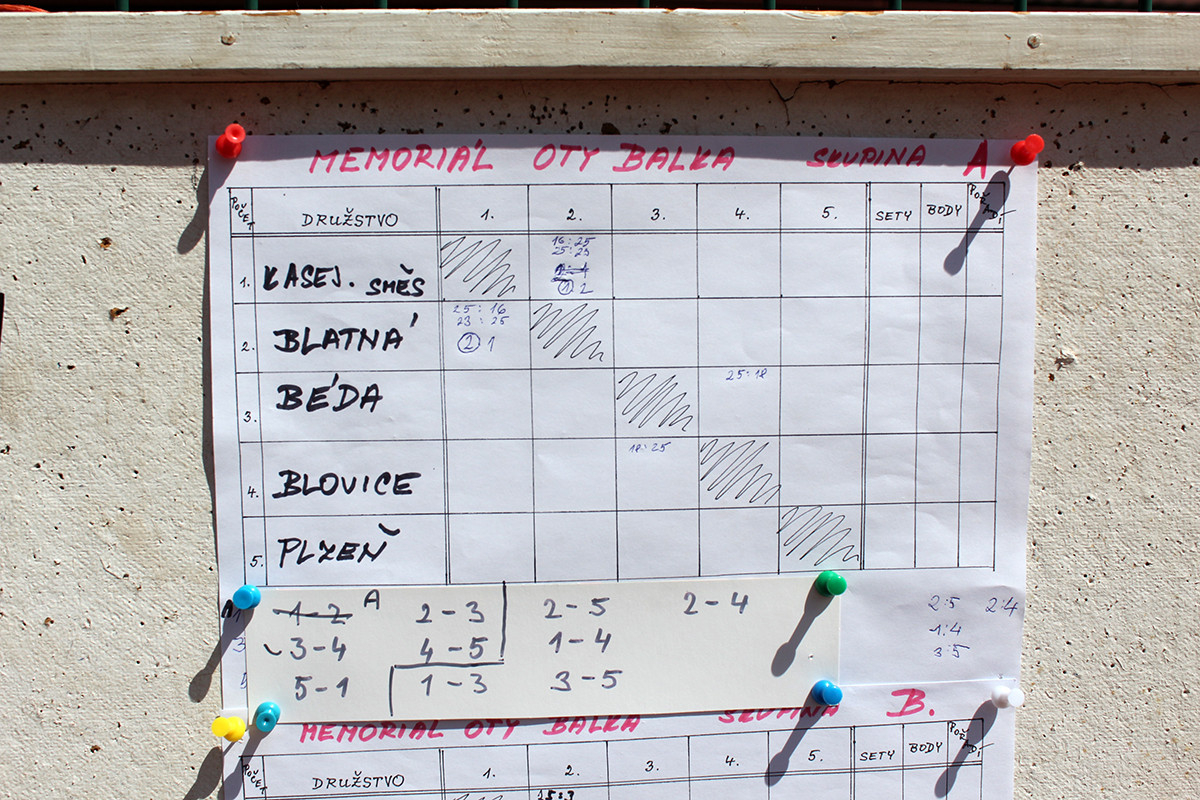 MEMORIÁL OTY BALKA SKUPINA A
POČET DRUŽSTVO 1. 2. 3. 4. 5. SETY BODY POŘADÍ
1. KASEJ. SMĚS 16:25
25:23
1 2
2. BLATNÁ 25:16
23:25
2 1
3. BÉDA 25:18
4. BLOVICE 18:25
5. PLZEŇ
1-2 A 2-3 2-5 2-4
3-4 4-5 1-4
5-1 1-3 3-5
2:5 2:4
1:4
3:5
MEMORIÁL OTY BALKA SKUPINA B.
POČET DRUŽSTVO 1. 2. 3. 4. 5. SETY BODY POŘADÍ